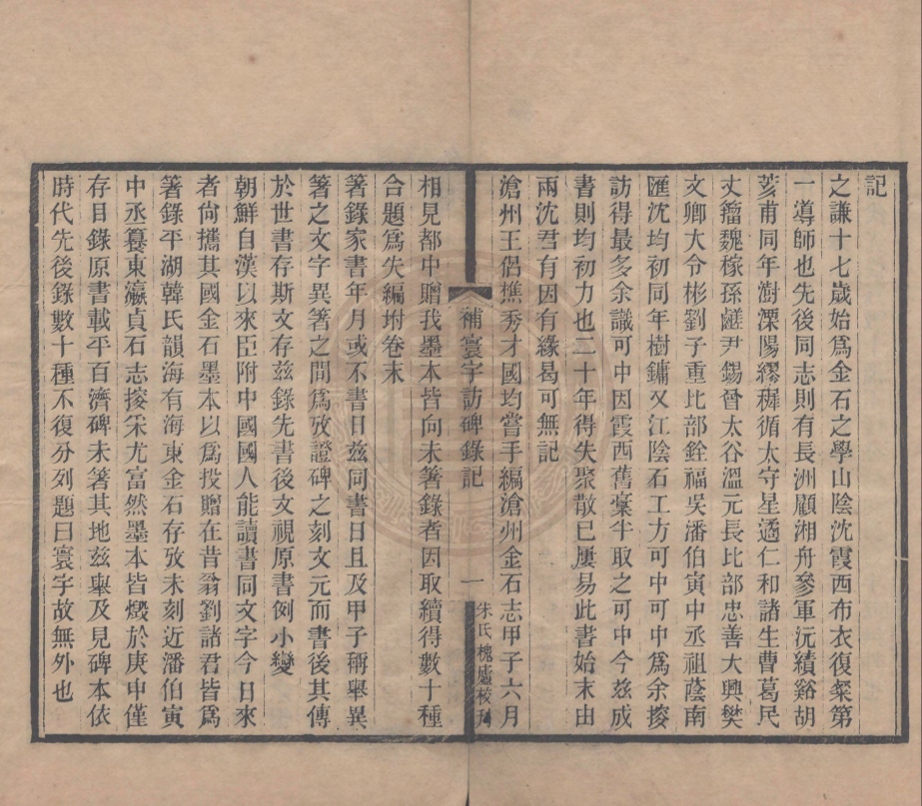 記
之謙十七歲始爲金石之學山陰沈霞西布衣復粲第
一導師也先後同志則有長洲顧湘舟參軍沅績谿胡
荄甫同年澍溧陽繆稺循太守星遹仁和諸生曹葛民
丈籀魏稼孫鹺尹錫曾太谷溫元長比部忠善大興樊
文卿大令彬劉子重比部銓福吳潘伯寅中丞祖蔭南
匯沈均初同年樹鏞又江陰石工方可中可中爲余搜
訪得最多余識可中因霞西舊稾半取之可中今茲成
書則均初力也二十年得失聚散巳屢易此書始末由
兩沈君有因有緣曷可無記
滄州王侶樵秀才國均嘗手編滄州金石志甲子六月
補寰宇訪碑錄記
一
朱氏槐廬校刋
相見都中贈我墨本皆向未箸錄者因取續得數十種
合題爲失編坿卷末
箸錄家書年月或不書日茲同書日且及甲子稱舉異
箸之文字異箸之間爲攷證碑之刻文元而書後其傳
於世書存斯文存茲錄先書後文視原書例小變
朝鮮自漢以來臣附中國國人能讀書同文字今日來
者尙攜其國金石墨本以爲投贈在昔翁劉諸君皆爲
箸錄平湖韓氏韻海有海東金石存攷未刻近潘伯寅
中丞纂東瀛貞石志搜采尤富然墨本皆燬於庚申僅
存目錄原書載平百濟碑未箸其地茲舉及見碑本依
時代先後錄數十種不復分列題曰寰宇故無外也